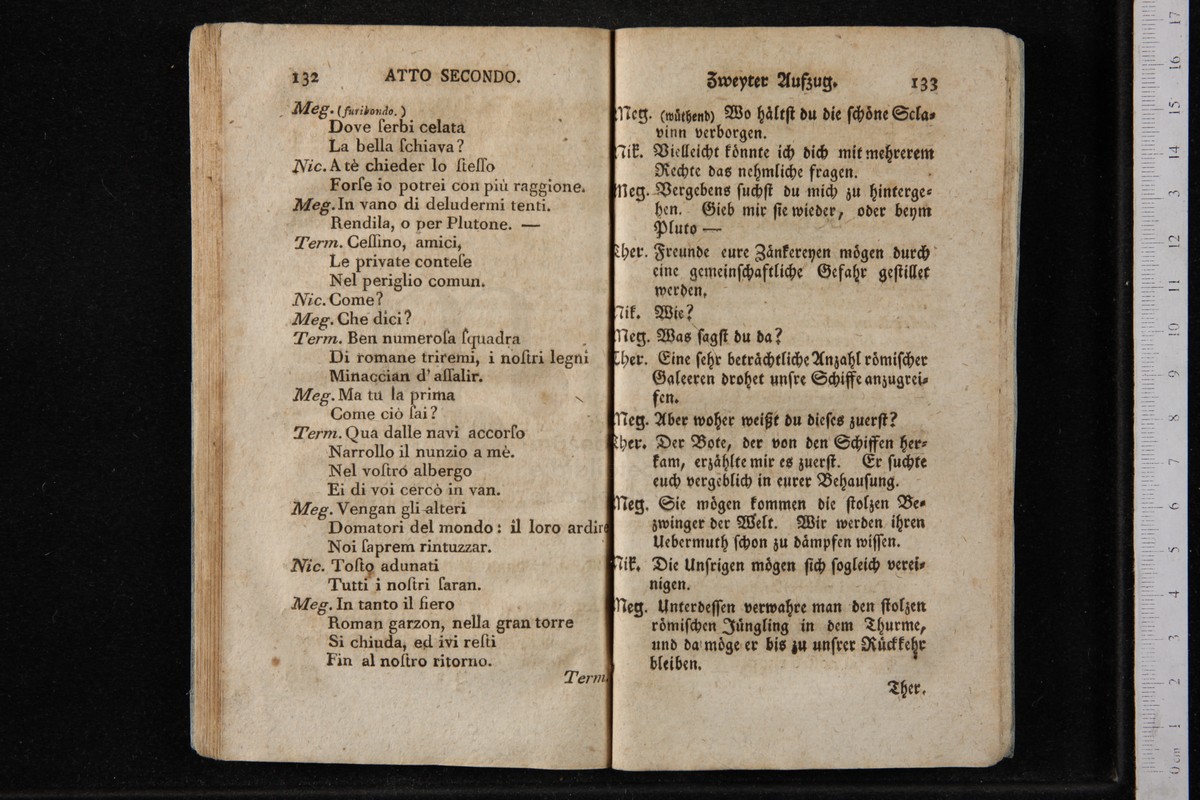 132 ATTO SECONDO.
Meg. (furibondo.)
Dove ſerbi celata
La bella ſchiava?
Nic. A tè chieder lo ſteſſo
Forſe io potrei con più raggione.
Meg. In vano di deludermi tenti.
Rendila, o per Plutone. —
Term. Ceſſino, amici,
Le private conteſe
Nel periglio comun.
Nic. Come?
Meg. Che dici?
Term. Ben numeroſa ſquadra
Di romane triremi, i noſtri legni
Minaccian d' aſſalir.
Meg. Ma tu la prima
Come ciò ſai?
Term. Qua dalle navi accorſo
Narrollo il nunzio a mè.
Nel voſtro albergo
Ei di voi cercò in van.
Meg. Vengan gli alteri
Domatori del mondo: il loro ardire
Noi ſaprem rintuzzar.
Nic. Toſto adunati
Tutti i noſtri ſaran.
Meg. In tanto il fiero
Roman garzon, nella gran torre
Si chiuda, ed ivi reſti
Fin al noſtro ritorno.
Term.
Zweyter Aufzug. 133
Meg. (wüthend) Wo hältſt du die ſchöne Scla-
vinn verborgen.
Nik. Vielleicht könnte ich dich mit mehrerem
Rechte das nehmliche fragen.
Meg. Vergebens ſuchſt du mich zu hinterge-
hen. Gieb mir ſie wieder, oder beym
Pluto —
Ther. Freunde eure Zänkereyen mögen durch
eine gemeinſchaftliche Gefahr geſtillet
werden,
Nik. Wie?
Meg. Was ſagſt du da?
Ther. Eine ſehr beträchtliche Anzahl römiſcher
Galeeren drohet unſre Schiffe anzugrei-
fen.
Meg. Aber woher weißt du dieſes zuerſt?
Ther. Der Bote, der von den Schiffen her-
kam, erzählte mir es zuerſt. Er ſuchte
euch vergeblich in eurer Behauſung.
Meg. Sie mögen kommen die ſtolzen Be-
zwinger der Welt. Wir werden ihren
Uebermuth ſchon zu dämpfen wiſſen.
Nik. Die Unſrigen mögen ſich ſogleich verei-
nigen.
Meg. Unterdeſſen verwahre man den ſtolzen
römiſchen Jüngling in dem Thurme,
und da möge er bis zu unſrer Rückkehr
bleiben.
Ther.
0 cm 1 2 3 4 5 6 7 8 9 10 11 12 13 14 15 16 17